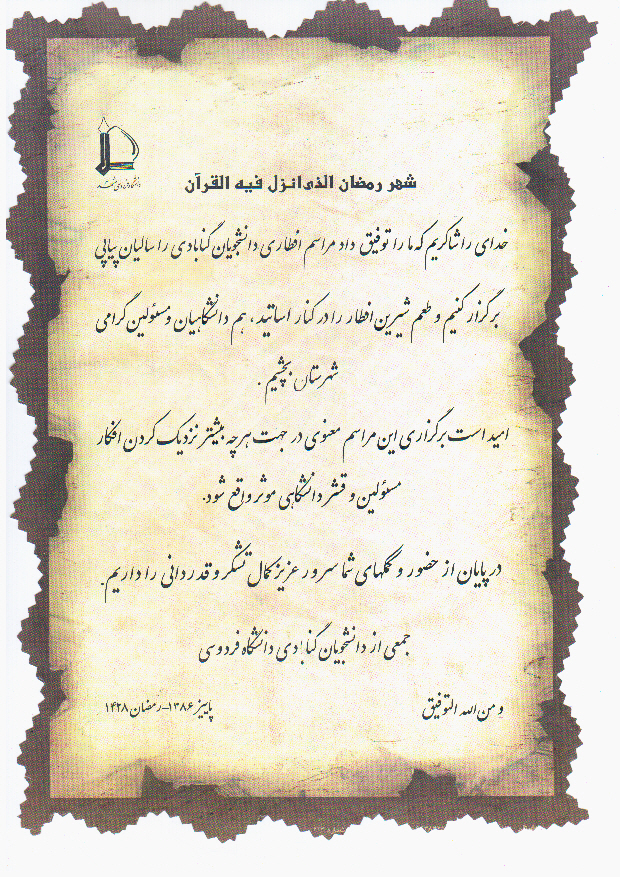 دانشگاه فردوسی مشهد
شهر رمضان الذی انزل فیه القرآن
خدای را شاکریم که ما را توفیق داد مراسم افطاری دانشجویان گنابادی را سالیان پیاپی
برگزار کنیم و طعم شیرین افطار را در کنار اساتید ، هم دانشگاهیان و مسئولین گرامی
شهرستان بچشیم .
امید است برگزاری این مراسم معنوی در جهت هرچه بیشتر نزدیک کردن افکار
مسئولین و قشر دانشگاهی موثر واقع شود.
در پایان از حضور و کمکهای شما سرور عزیز کمال تشکر و قدردانی را داریم.
جمعی از دانشجویان گنابادی دانشگاه فردوسی
و من الله التوفیق
پاییز ۱۳۸۶-رمضان ۱۴۲۸